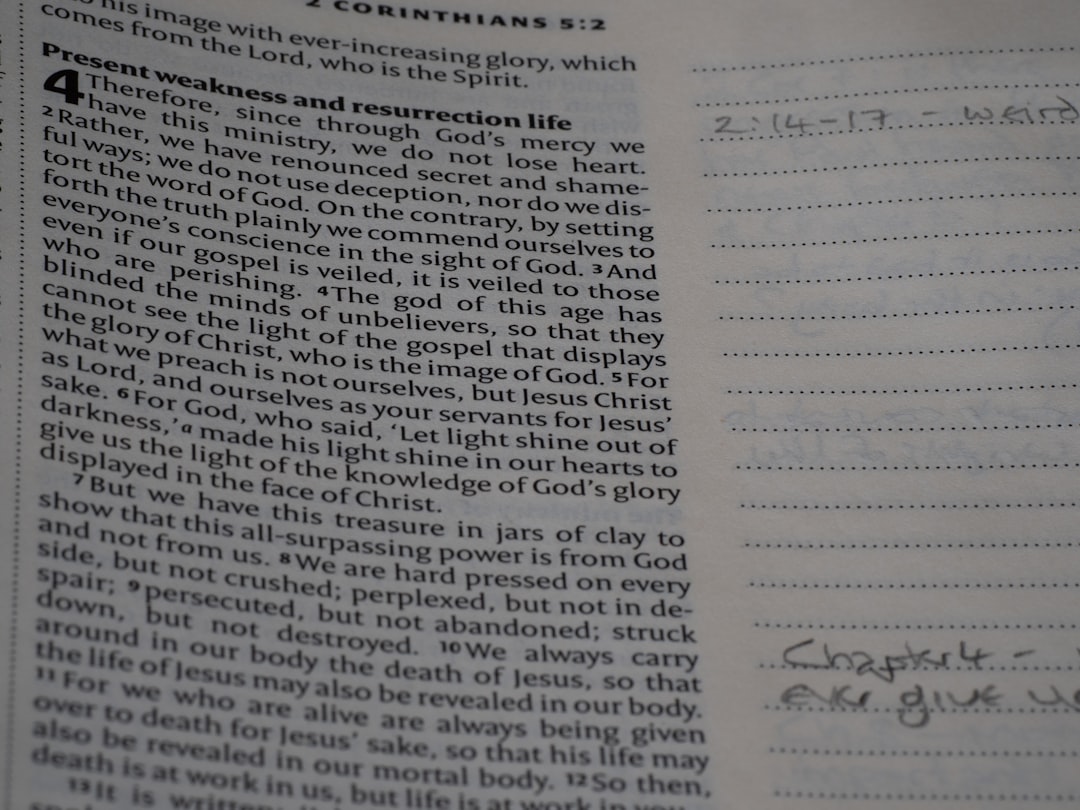 2 CORINTHIANS 5:2
his image with ever-increasing glory, which
comes from the Lord, who is the Spirit.
Present weakness and resurrection life
4 Therefore, since through God's mercy we
have this ministry, we do not lose heart.
2 Rather, we have renounced secret and shame-
ful ways; we do not use deception, nor do we dis-
tort the word of God. On the contrary, by setting
forth the truth plainly we commend ourselves to
everyone's conscience in the sight of God. 3 And
even if our gospel is veiled, it is veiled to those
who are perishing. 4 The god of this age has
blinded the minds of unbelievers, so that they
cannot see the light of the gospel that displays
the glory of Christ, who is the image of God. 5 For
what we preach is not ourselves, but Jesus Christ
as Lord, and ourselves as your servants for Jesus'
sake. 6 For God, who said, 'Let light shine out of
darkness,' a made his light shine in our hearts to
give us the light of the knowledge of God's glory
displayed in the face of Christ.
7 But we have this treasure in jars of clay to
show that this all-surpassing power is from God
and not from us. 8 We are hard pressed on every
side, but not crushed; perplexed, but not in de-
spair; 9 persecuted, but not abandoned; struck
down, but not destroyed. 10 We always carry
around in our body the death of Jesus, so that
the life of Jesus may also be revealed in our body.
11 For we who are alive are always being given
over to death for Jesus' sake, so that his life may
also be revealed in our mortal body. 12 So then,
death is at work in us, but life is at work in you.
13 It is written:
2:14-17 - weird
Chapter 4 -
ever give